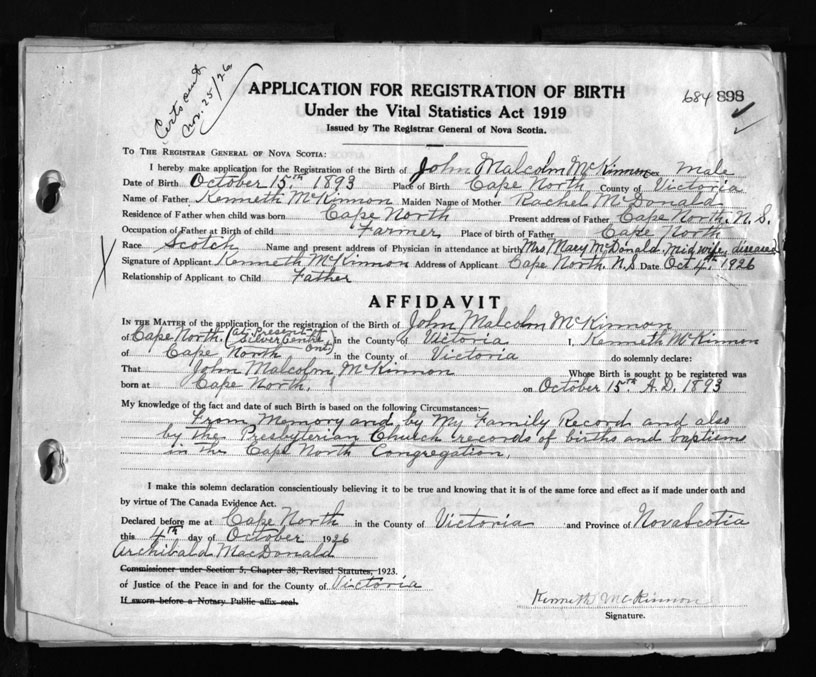 Certs out
Nov. 25/26
APPLICATION FOR REGISTRATION OF BIRTH
684 898
Under the Vital Statistics Act 1919
Issued by The Registrar General of Nova Scotia.
TO THE REGISTRAR GENERAL OF NOVA SCOTIA:
I hereby make application for the Registration of the Birth of John Malcolm McKinnon Sex Male
Date of Birth October 15th 1893 Place of Birth Cape North County of Victoria
Name of Father Kenneth McKinnon Maiden Name of Mother Rachel McDonald
Residence of Father when child was born Cape North Present address of Father Cape North, N.S.
Occupation of Father at Birth of child Farmer Place of birth of Father Cape North
Race Scotch Name and present address of Physician in attendance at birth Mrs Mary McDonald, Midwife, diseased
Signature of Applicant Kenneth McKinnon Address of Applicant Cape North, N.S Date Oct 4th 1926
Relationship of Applicant to Child Father
AFFIDAVIT
IN THE MATTER of the application for the registration of the Birth of John Malcolm McKinnon
of Cape North. (at Present Silver Centre Ont) in the County of Victoria I, Kenneth McKinnon
of Cape North in the County of Victoria do solemnly declare:
That John Malcolm McKinnon Whose Birth is sought to be registered was
born at Cape North, on October 15th A.D. 1893
My knowledge of the fact and date of such Birth is based on the following Circumstances:—
From Memory and by My Family Record and also
by the Presbyterian Church records of births and baptisms
in the Cape North Congregation.
I make this solemn declaration conscientiously believing it to be true and knowing that it is of the same force and effect as if made under oath and
by virtue of The Canada Evidence Act.
Declared before me at Cape North in the County of Victoria and Province of Nova Scotia
this 4th day of October 1926
Archibald MacDonald
Commissioner under Section 5, Chapter 38, Revised Statutes, 1923.
of Justice of the Peace in and for the County of Victoria
If sworn before a Notary Public affix seal.
Kenneth McKinnon
Signature.